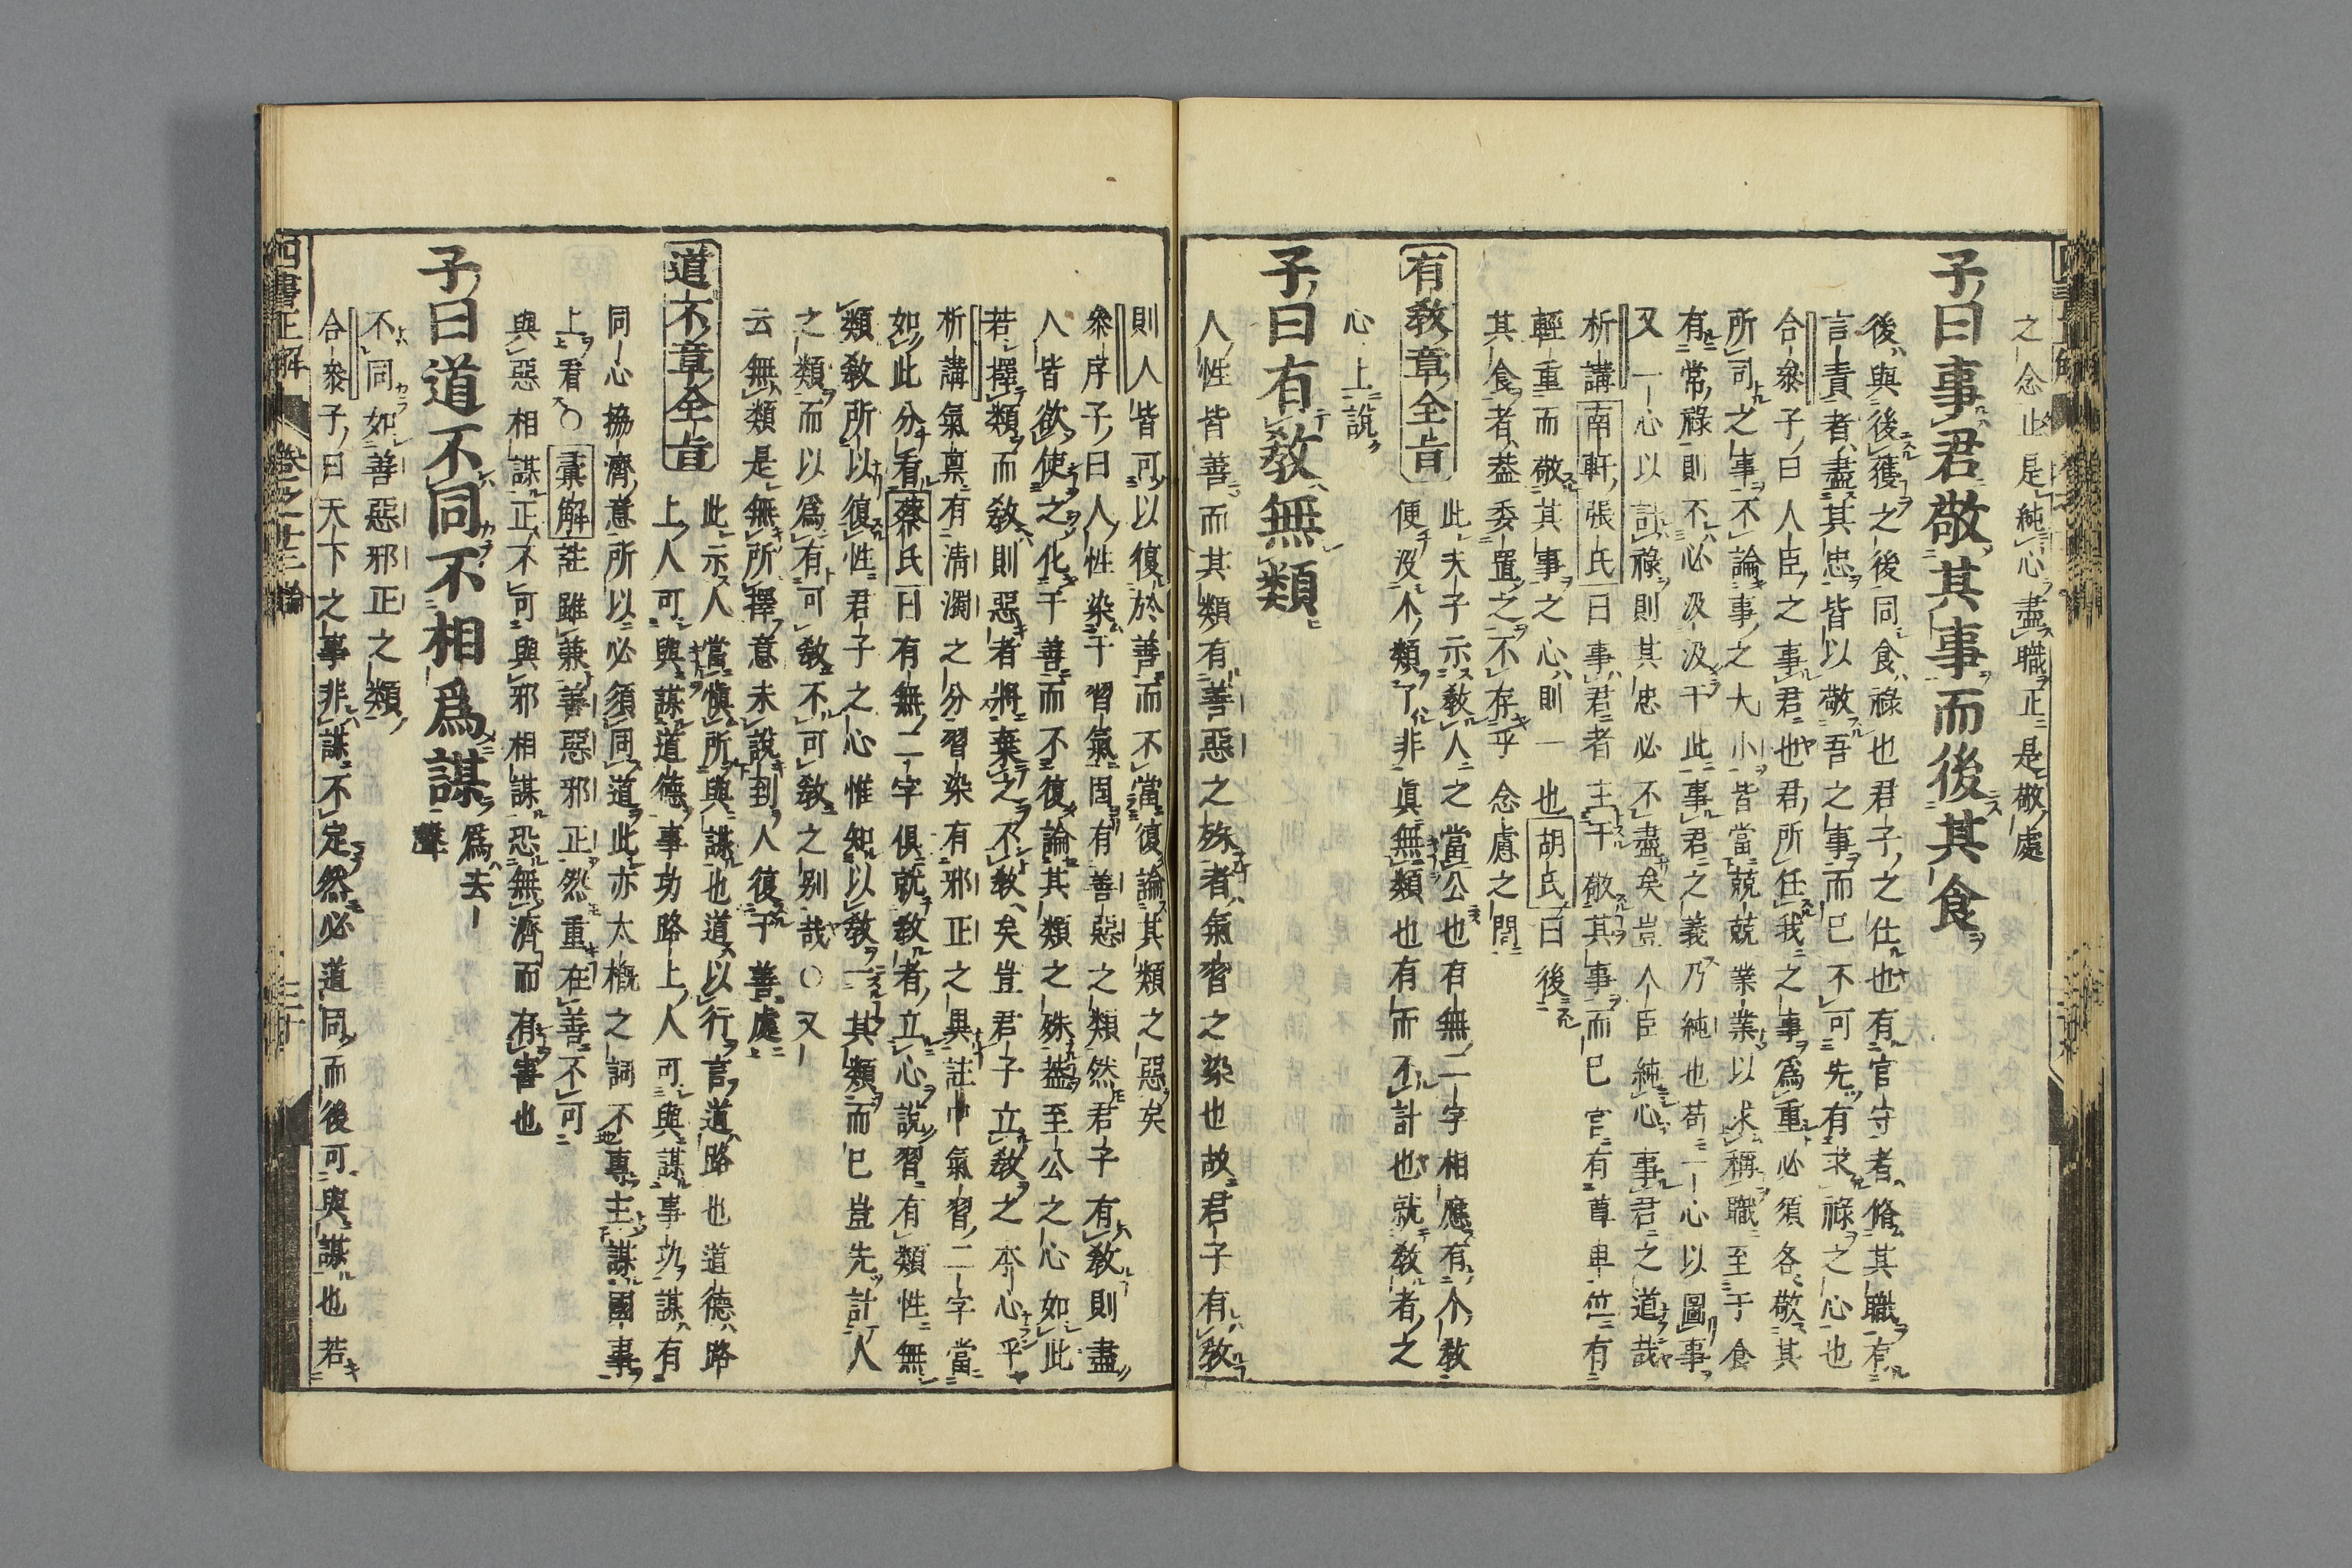 之念止是純心盡職正是敬處
子曰事君敬其事而後其食
後與後獲之後同食祿也君子之仕也有官守者脩其職有
言責者盡其忠皆以敬吾之事而已不可先有求祿之心也
合參子曰人臣之事君也君所任我之事爲重必須各敬其
所司之事不論事之大小皆當兢兢業業以求稱職至于食
有常祿則不必汲汲于此事君之義乃純也苟一心以圖事
又一心以計祿則其忠必不盡矣豈人臣純心事君之道哉
析講南軒張氏曰事君者主于敬其事而已官有尊卑位有
輕重而敬其事之心則一也胡氏曰後
其食者葢委置之不存乎念慮之間
有教章全旨
此夫子示教人之當公也有無二字相應有个教
便沒个類了非眞無類也有而不計也就教者之
心上說
子曰有教無類
人性皆善而其類有善惡之殊者氣習之染也故君子有教
則人皆可以復於善而不當復論其類之惡矣
參序子曰人性染于習氣固有善惡之類然君子有教則盡
人皆欲使之化于善而不復論其類之殊葢至公之心如此
若擇類而教則惡者將棄之不教矣豈君子立教之本心乎
析講氣稟有淸濁之分習染有邪正之異註中氣習二字當
如此分看蔡氏曰有無二字俱就教者立心說習有類性無
類教所以復性君子之心惟知以教一其類而已豈先計人
之類而以爲有可教不可教之別哉○又
云無類是無所擇意未說到人復于善處
道不章全旨
此示人當愼所與謀也道以行言道路也道德路
上人可與謀道德事功路上人可與謀事功謀有
同心協濟意所以必須同道此亦太槪之詞不專主謀國事
上看○彚解註雖兼善惡邪正然重在善不可
與惡相謀正不可與邪相謀恐無濟而有害也
子曰道不同不相爲謀
爲去
聲
不同如善惡邪正之類
合參子曰天下之事非謀不定然必道同而後可與謀也若
四書正解
卷之十三論
三十